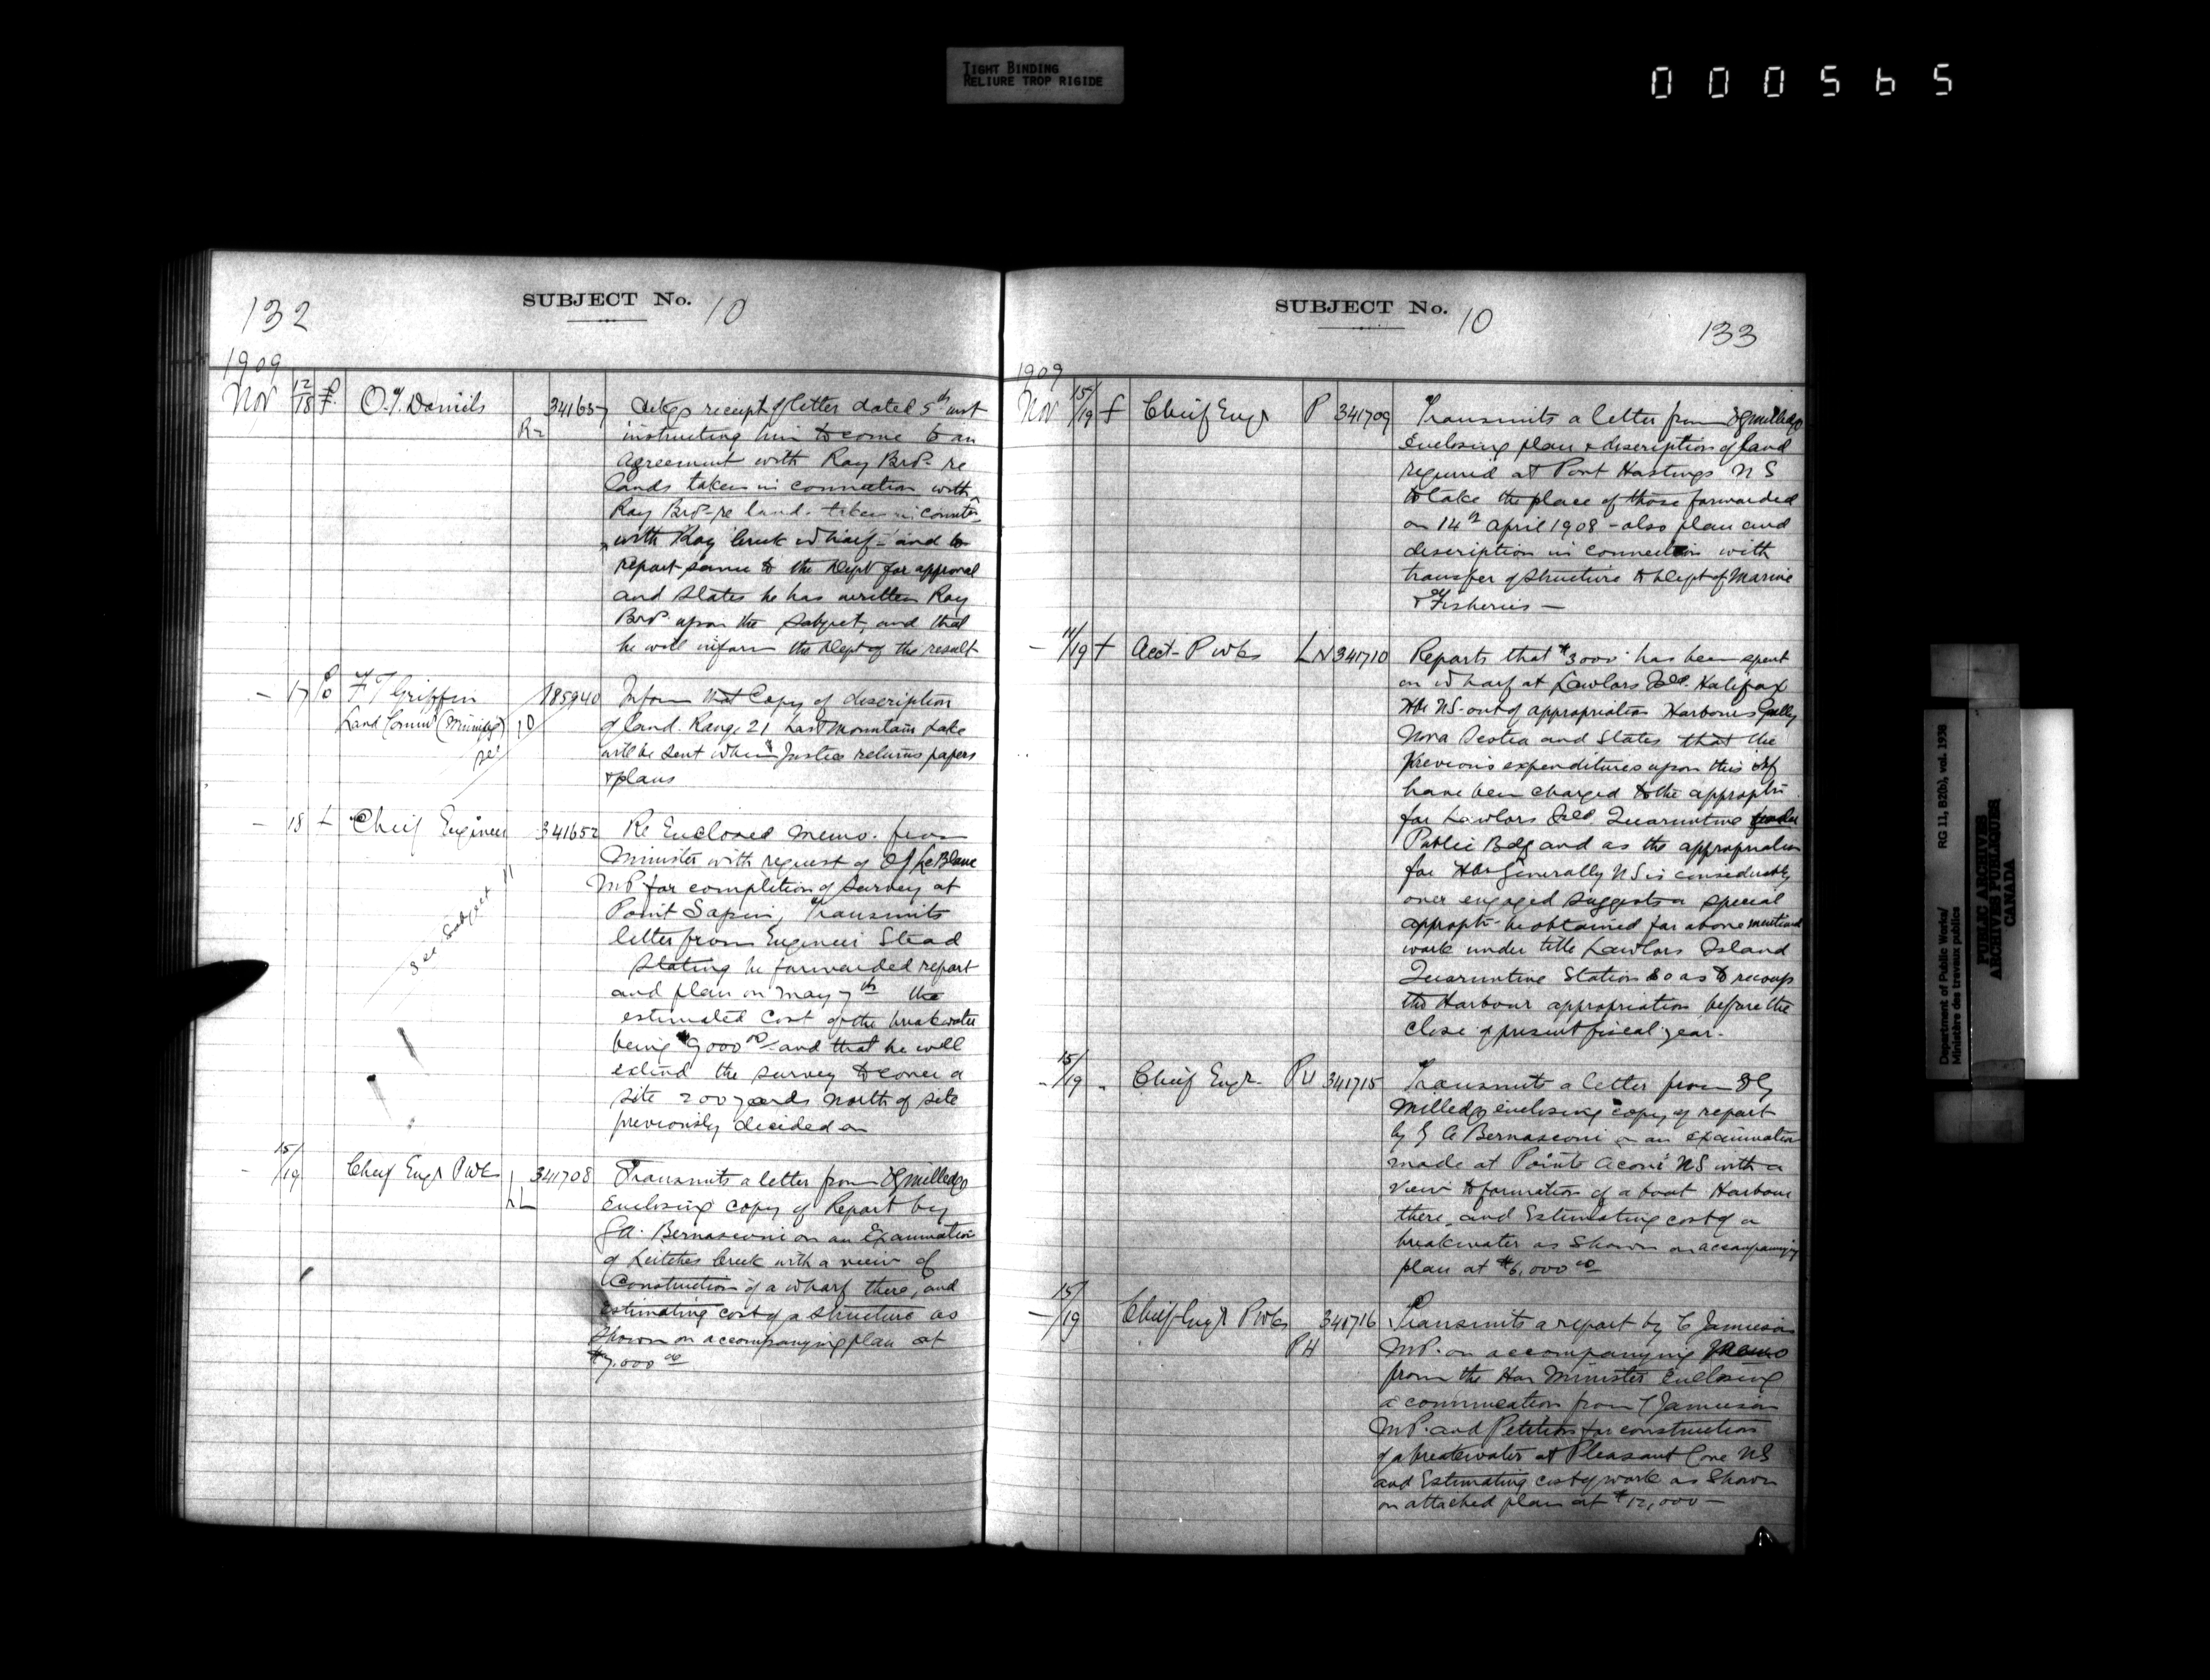 TIGHT BINDING
RELIURE TROP RIGIDE
000565
132
SUBJECT No. 10
1909
Nov 12/18 O.T. Daniels R2 341657
receipt of letter dated 5th inst
instructing him to come to an
agreement with Ray Bros re
lands taken in connection with
Ray Bros re land taken in
with Ray Creek Wharf - and to
report same to the Dept for approval
and states he has written Ray
Bros upon the subject, and that
he will inform the Dept of the result
- 17 F T Griffin 185940
Land Commr (Winnipeg) 10
Inform that Copy of description
of land. Range 21 Last Mountain Lake
will be sent when Justice returns papers
& plans
- 18 L Chief Engineer 341652
See Subject 11
Re Enclosed memo. from
Minister with request of OJ LeBlanc
MP for completion of survey at
Point Sapin, Transmits
letter from Engineer Stead
stating he forwarded report
and plan on May 7th the
estimated cost of the breakwater
being $9000 00/- and that he will
extend the survey to cover a
site 200 yards north of site
previously decided on
- 15/19 Chief Engr PWks LL 341708
Transmits a letter from Milledge
Enclosing copy of Report by
GA. Bernasconi on an Examination
of Leitches Creek with a view of
Construction of a wharf there, and
Estimating cost of a structure as
shown on accompanying plan at
$7.000 00
SUBJECT No. 10
133
1909
Nov 15/19 f Chief Engr P 341709
Transmits a letter from Milledge
Enclosing plan & description of land
required at Port Hastings NS
to take the place of those forwarded
on 14th April 1908 - also plan and
description in connection with
transfer of structure to Dept of Marine
& Fisheries -
- 11/19 + Acct- P Wks LN 341710
Reports that $3000 has been spent
on wharf at Lawlors Isld. Halifax
Hbr NS - out of appropriation Harbours Gnlly
Nova Scotia and states that the
previous expenditures upon this wf
have been charged to the appropth
for Lawlors Isld Quarantine under
Public Bdg and as the appropriation
for Hbr Generally NS is considerably
over engaged suggests a special
appropth - be obtained for above mentioned
work under title Lawlors Island
Quarantine Station so as to recoup
the Harbour appropriation before the
close of present fiscal year.
- 15/19 - Chief Engr. PH 341715
Transmits a letter from
Milledge enclosing copy of report
by G A Bernasconi on an Examination
made at Pointe Aconi NS with a
view to formation of a boat Harbour
there, and Estimating cost of a
breakwater as shown on accompanying
plan at $6,000 00
- 15/19 Chief Engr P Wks PH 341716
Transmits a report by C Jameson
MP. on accompanying Memo
from the Hon Minister Enclosing
a communcation from C Jameson
MP. and Petition for construction
of a breakwater at Pleasant Cove NS
and Estimating cost of work as shown
on attached plan at $12,000 -
Department of Public Works/ RG 11, B2(b), vol. 1938
Ministère des travaux publics
PUBLIC ARCHIVES
ARCHIVES PUBLIQUES
CANADA